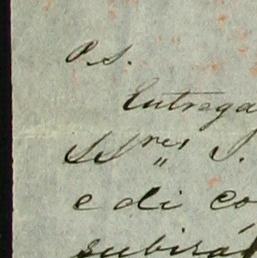 P.S.
Entrega
SS^res S.
e di co
subira